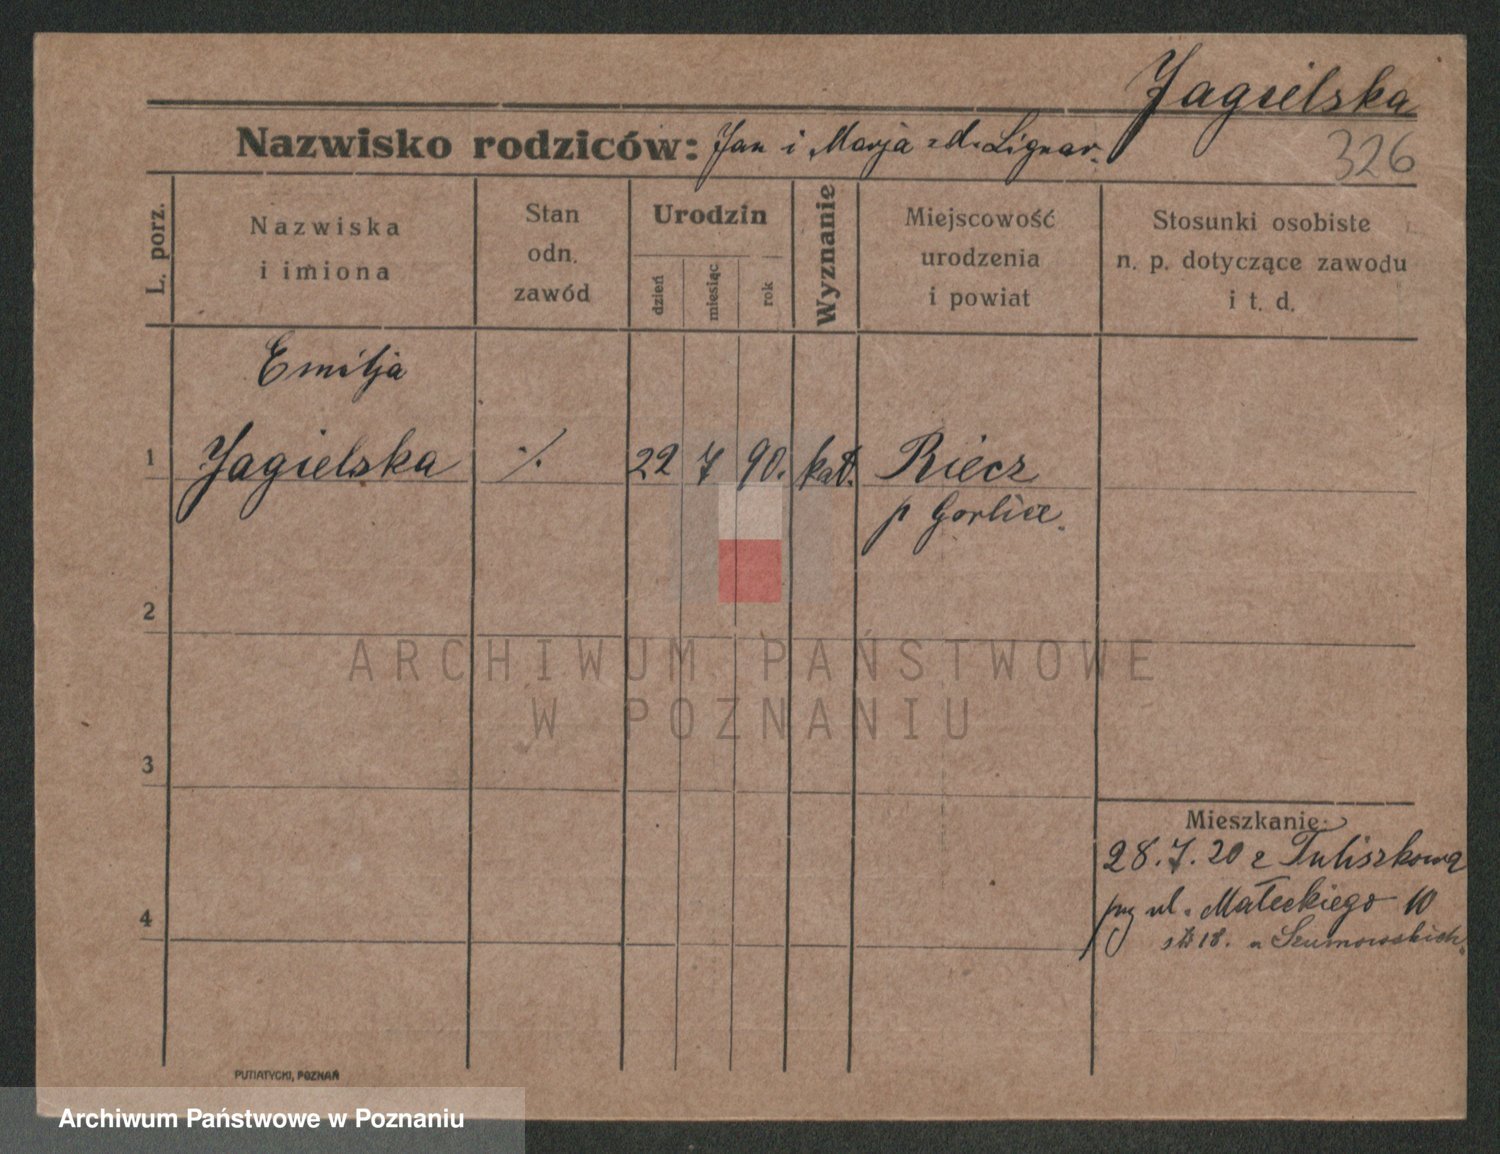 Jagielska
Nazwisko rodziców: Jan i Marja z d. Lignar.
326
L. porz.
Nazwiska
i imiona
Stan
odn.
zawód
Urodzin
dzień
miesiąc
rok
Wyznanie
Miejscowość
urodzenia
i powiat
Stosunki osobiste
n. p. dotyczące zawodu
i t. d.
Emilja
1 Jagielska ·/. 22 7 90. kat. Riecz
p Gorlice.
2
ARCHIWUM PAŃSTWOWE
W POZNANIU
3
Mieszkanie:
28.7.20 z Tuliszkowa
przy ul. Małeckiego 10
4
18. u Szumowskich.
PUTIATYCKI, POZNAŃ
Archiwum Państwowe w Poznaniu